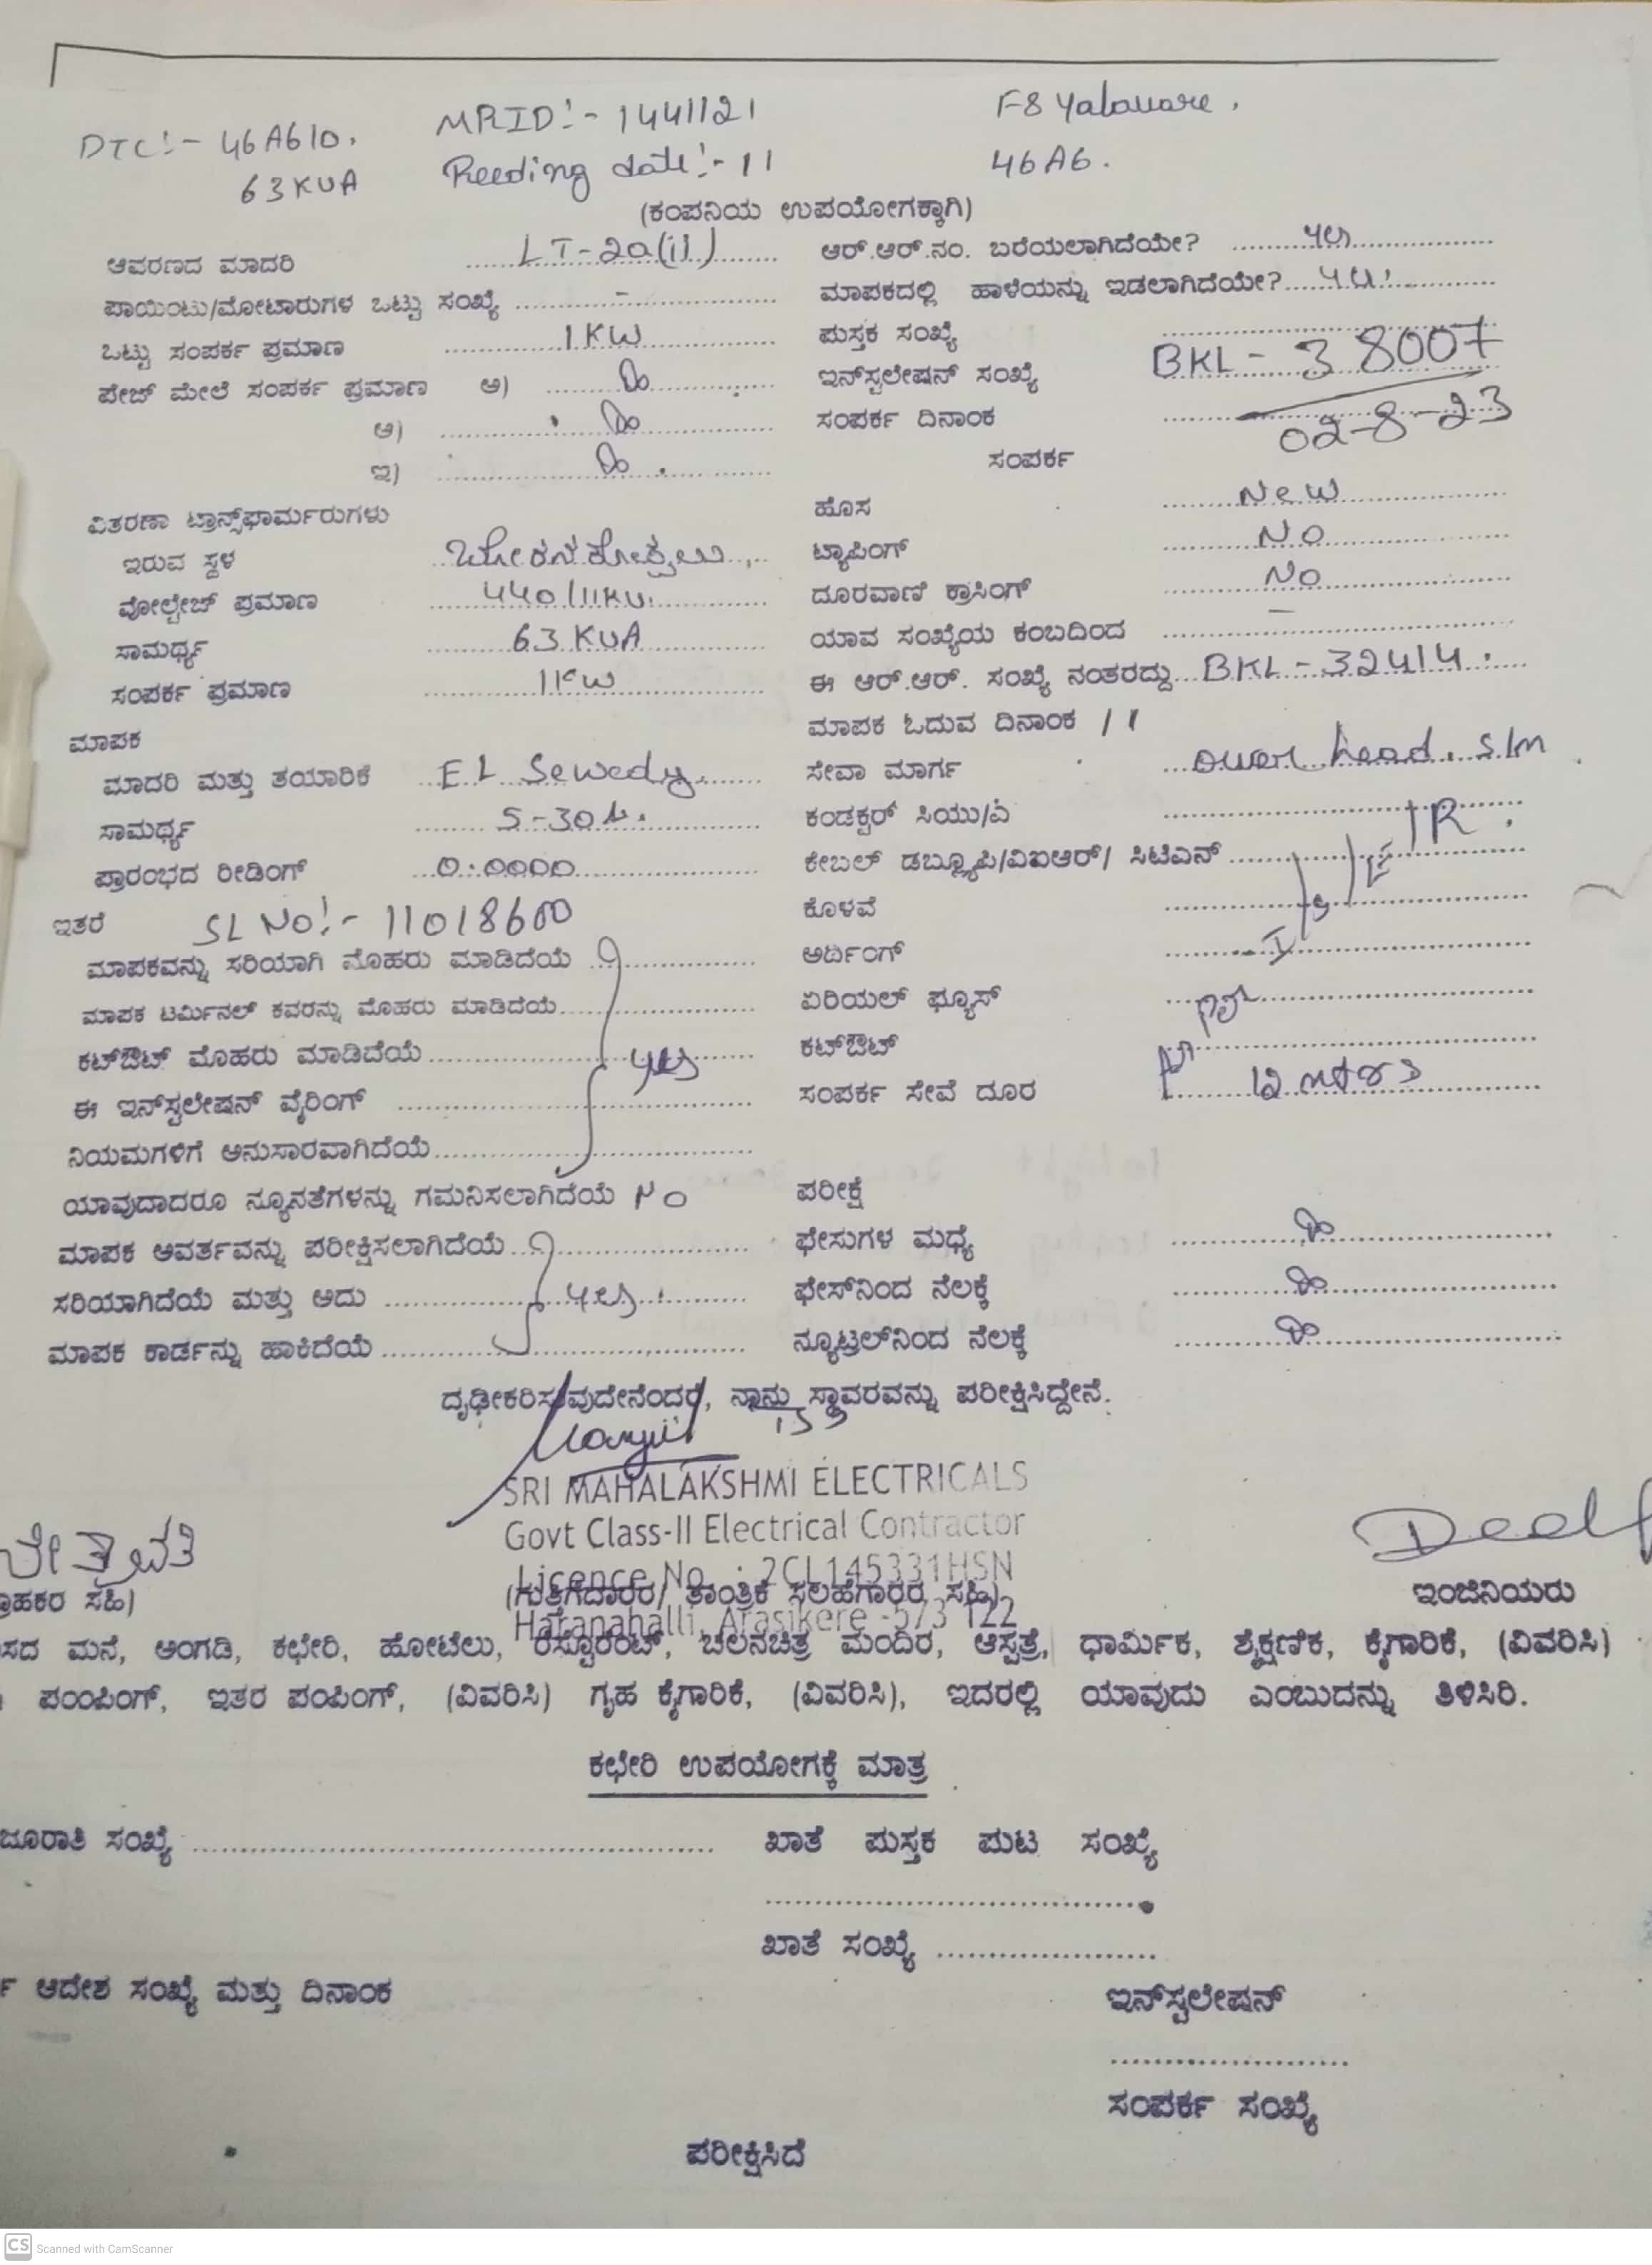 DTC:- 46A610. MRID:- 1441121 F8 Yalavare.
63KVA Reeding date:- 11 46A6.
(ಕಂಪನಿಯ ಉಪಯೋಗಕ್ಕಾಗಿ)
ಆವರಣದ ಮಾದರಿ LT-2a(ii) ಆರ್.ಆರ್.ನಂ. ಬರೆಯಲಾಗಿದೆಯೇ? yes
ಪಾಯಿಂಟು/ಮೋಟಾರುಗಳ ಒಟ್ಟು ಸಂಖ್ಯೆ - ಮಾಪಕದಲ್ಲಿ ಹಾಳೆಯನ್ನು ಇಡಲಾಗಿದೆಯೇ?
ಒಟ್ಟು ಸಂಪರ್ಕ ಪ್ರಮಾಣ 1KW ಪುಸ್ತಕ ಸಂಖ್ಯೆ
ಪೇಜ್ ಮೇಲೆ ಸಂಪರ್ಕ ಪ್ರಮಾಣ ಅ) ಇನ್‌ಸ್ಟಲೇಷನ್ ಸಂಖ್ಯೆ BKL - 38007
ಆ) ಸಂಪರ್ಕ ದಿನಾಂಕ 02-8-23
ಇ) ಸಂಪರ್ಕ
ವಿತರಣಾ ಟ್ರಾನ್ಸ್‌ಫಾರ್ಮರುಗಳು ಹೊಸ New
ಇರುವ ಸ್ಥಳ ಟ್ಯಾಪಿಂಗ್ NO
ವೋಲ್ಟೇಜ್ ಪ್ರಮಾಣ 440/11KV. ದೂರವಾಣಿ ಕ್ರಾಸಿಂಗ್ No
ಸಾಮರ್ಥ್ಯ 63 KVA ಯಾವ ಸಂಖ್ಯೆಯ ಕಂಬದಿಂದ -
ಸಂಪರ್ಕ ಪ್ರಮಾಣ 1KW ಈ ಆರ್.ಆರ್. ಸಂಖ್ಯೆ ನಂತರದ್ದು BKL-32414.
ಮಾಪಕ ಮಾಪಕ ಓದುವ ದಿನಾಂಕ 11
ಮಾದರಿ ಮತ್ತು ತಯಾರಿಕೆ EL Sewedy. ಸೇವಾ ಮಾರ್ಗ over head. S/m
ಸಾಮರ್ಥ್ಯ 5-30A. ಕಂಡಕ್ಟರ್ ಸಿಯು/ಎ
ಪ್ರಾರಂಭದ ರೀಡಿಂಗ್ 0.0000 ಕೇಬಲ್ ಡಬ್ಲ್ಯೂಪಿ/ವಿಐಆರ್/ ಸಿಟಿಎನ್
ಇತರೆ SL No:- 11018600 ಕೊಳವೆ
ಮಾಪಕವನ್ನು ಸರಿಯಾಗಿ ಮೊಹರು ಮಾಡಿದೆಯೆ ಅರ್ದಿಂಗ್
ಮಾಪಕ ಟರ್ಮಿನಲ್ ಕವರನ್ನು ಮೊಹರು ಮಾಡಿದೆಯೆ ಏರಿಯಲ್ ಫ್ಯೂಸ್
ಕಟ್‌ಔಟ್ ಮೊಹರು ಮಾಡಿದೆಯೆ yes ಕಟ್‌ಔಟ್
ಈ ಇನ್‌ಸ್ಟಲೇಷನ್ ವೈರಿಂಗ್ ಸಂಪರ್ಕ ಸೇವೆ ದೂರ
ನಿಯಮಗಳಿಗೆ ಅನುಸಾರವಾಗಿದೆಯೆ
ಯಾವುದಾದರೂ ನ್ಯೂನತೆಗಳನ್ನು ಗಮನಿಸಲಾಗಿದೆಯೆ NO ಪರೀಕ್ಷೆ
ಮಾಪಕ ಆವರ್ತವನ್ನು ಪರೀಕ್ಷಿಸಲಾಗಿದೆಯೆ ಫೇಸುಗಳ ಮಧ್ಯೆ
ಸರಿಯಾಗಿದೆಯೆ ಮತ್ತು ಅದು yes. ಫೇಸ್‌ನಿಂದ ನೆಲಕ್ಕೆ
ಮಾಪಕ ಕಾರ್ಡನ್ನು ಹಾಕಿದೆಯೆ ನ್ಯೂಟ್ರಲ್‌ನಿಂದ ನೆಲಕ್ಕೆ
ದೃಢೀಕರಿಸುವುದೇನೆಂದರೆ, ನಾನು ಸ್ಥಾವರವನ್ನು ಪರೀಕ್ಷಿಸಿದ್ದೇನೆ.
SRI MAHALAKSHMI ELECTRICALS
Govt Class-II Electrical Contractor
Licence No. : 2CL145331HSN
ಾಹಕರ ಸಹಿ) (ಗುತ್ತಿಗೆದಾರರ/ ತಾಂತ್ರಿಕ ಸಲಹೆಗಾರರ ಸಹಿ) ಇಂಜಿನಿಯರು
Haranahalli, Arasikere -573 122
ಸದ ಮನೆ, ಅಂಗಡಿ, ಕಛೇರಿ, ಹೋಟೆಲು, ರೆಸ್ಟೂರೆಂಟ್, ಚಲನಚಿತ್ರ ಮಂದಿರ, ಆಸ್ಪತ್ರೆ, ಧಾರ್ಮಿಕ, ಶೈಕ್ಷಣಿಕ, ಕೈಗಾರಿಕೆ, (ವಿವರಿಸಿ)
ಪಂಂಪಿಂಗ್, ಇತರ ಪಂಪಿಂಗ್, (ವಿವರಿಸಿ) ಗೃಹ ಕೈಗಾರಿಕೆ, (ವಿವರಿಸಿ), ಇದರಲ್ಲಿ ಯಾವುದು ಎಂಬುದನ್ನು ತಿಳಿಸಿರಿ.
ಕಛೇರಿ ಉಪಯೋಗಕ್ಕೆ ಮಾತ್ರ
ಜೂರಾತಿ ಸಂಖ್ಯೆ ಖಾತೆ ಪುಸ್ತಕ ಪುಟ ಸಂಖ್ಯೆ
ಖಾತೆ ಸಂಖ್ಯೆ
ಆದೇಶ ಸಂಖ್ಯೆ ಮತ್ತು ದಿನಾಂಕ ಇನ್‌ಸ್ಟಲೇಷನ್
ಸಂಪರ್ಕ ಸಂಖ್ಯೆ
ಪರೀಕ್ಷಿಸಿದೆ
CS Scanned with CamScanner